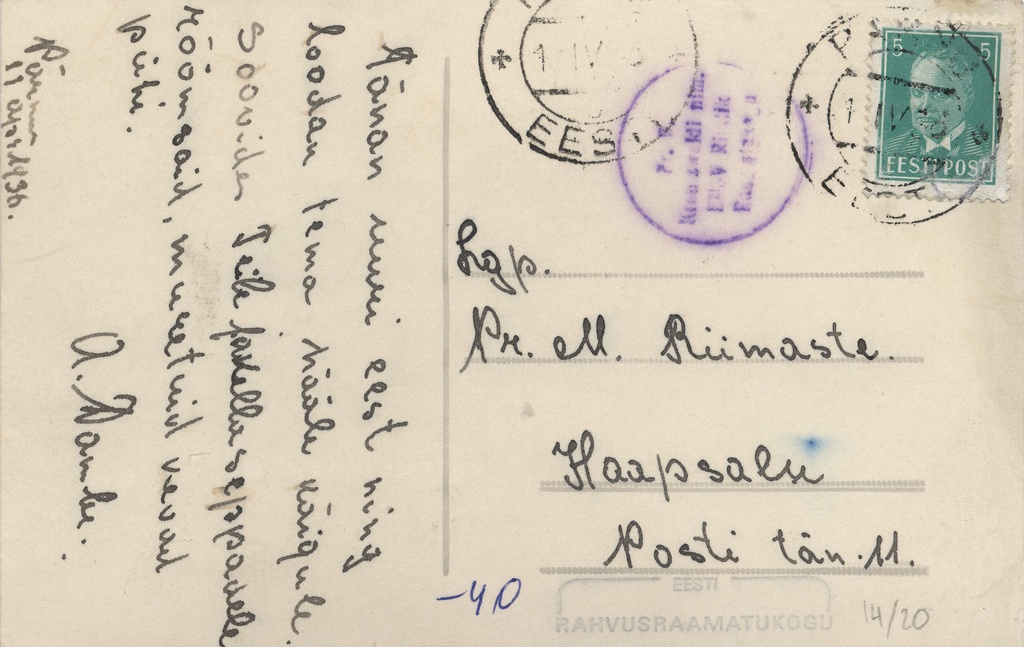 Tänan uuri eest ning
loodan tema hääle käigule.
Soovides Teile
rõõmsaid, muretuid kevad
pühi.
A. Dambe.
Pärnu
11 apr 1936.
EESTI
1 IV
EESTI
5 5
EESTI POST
Pr. R.
Lgp.
Pr. M. Riimaste.
Haapsalu
Posti tän. 11.
-40
EESTI
RAHVUSRAAMATUKOGU
14/20